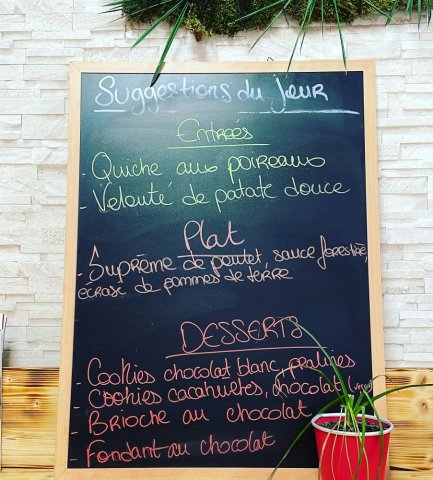 Suggestions du jour
Entrées
- Quiche aux poireaux
- Velouté de patate douce
Plat
- Suprême de poulet, sauce forestière,
écrasé de pommes de terre
DESSERTS
- Cookies chocolat blanc, pralines
- Cookies cacahuètes, chocolat
- Brioche au chocolat
- Fondant au chocolat